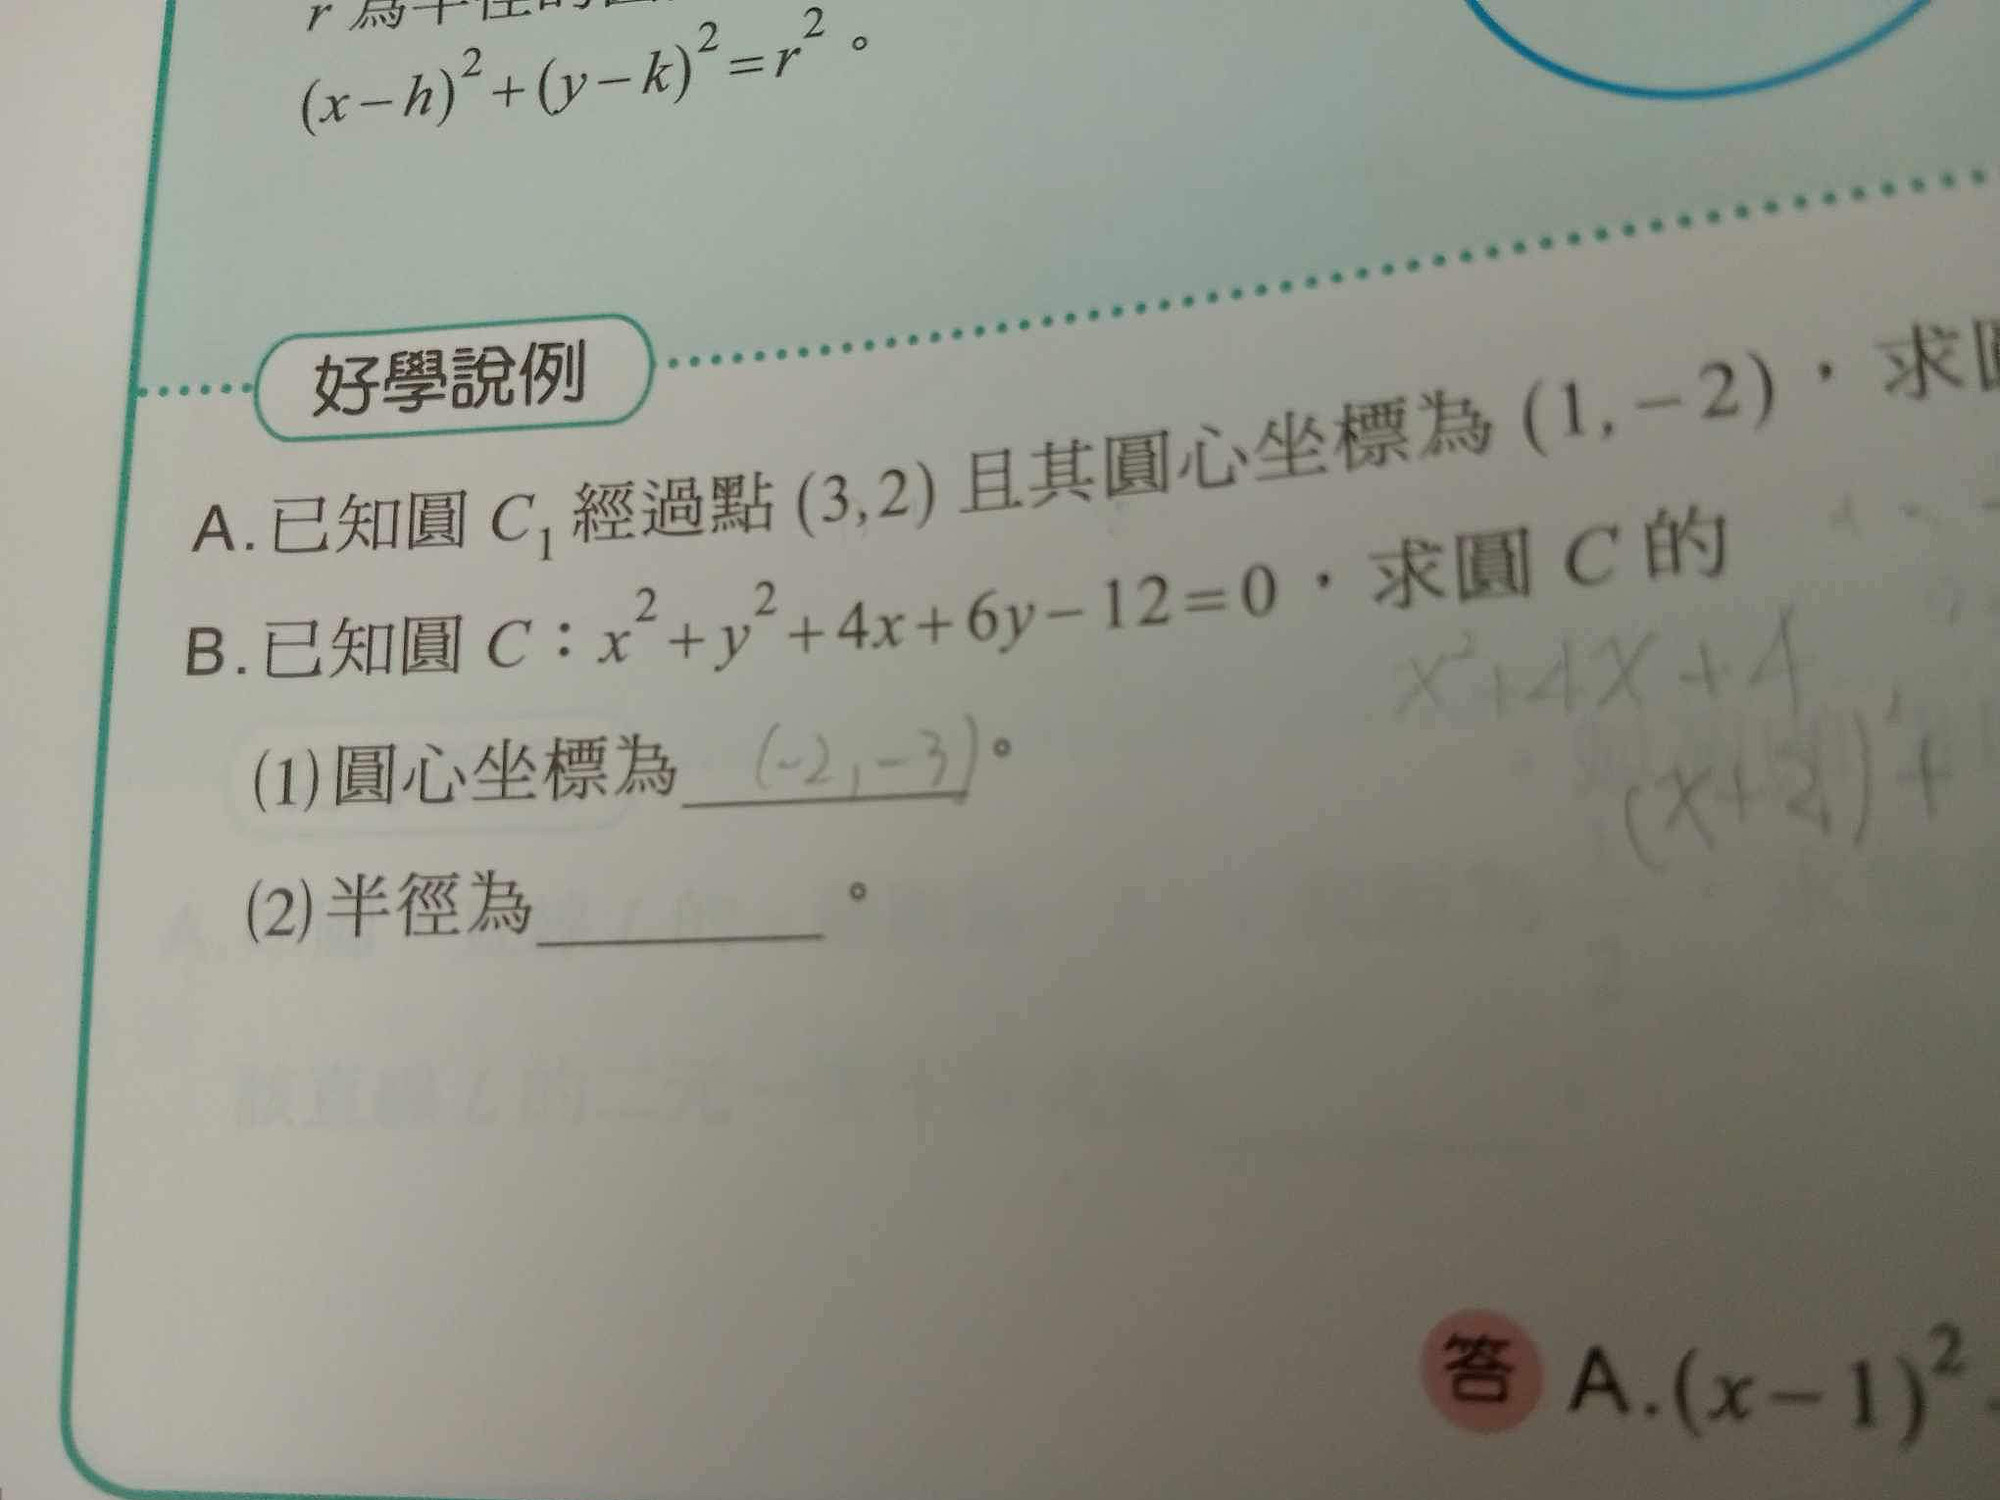 r 為半徑的
(x-h)²+(y-k)²=r²。
好學說例
A.已知圓 C₁ 經過點 (3,2) 且其圓心坐標為 (1,-2),求
B.已知圓 C:x²+y²+4x+6y-12=0,求圓 C 的
x²+4x+4
(1)圓心坐標為 (-2,-3)。
(x+2)²+
(2)半徑為 。
答 A.(x-1)²